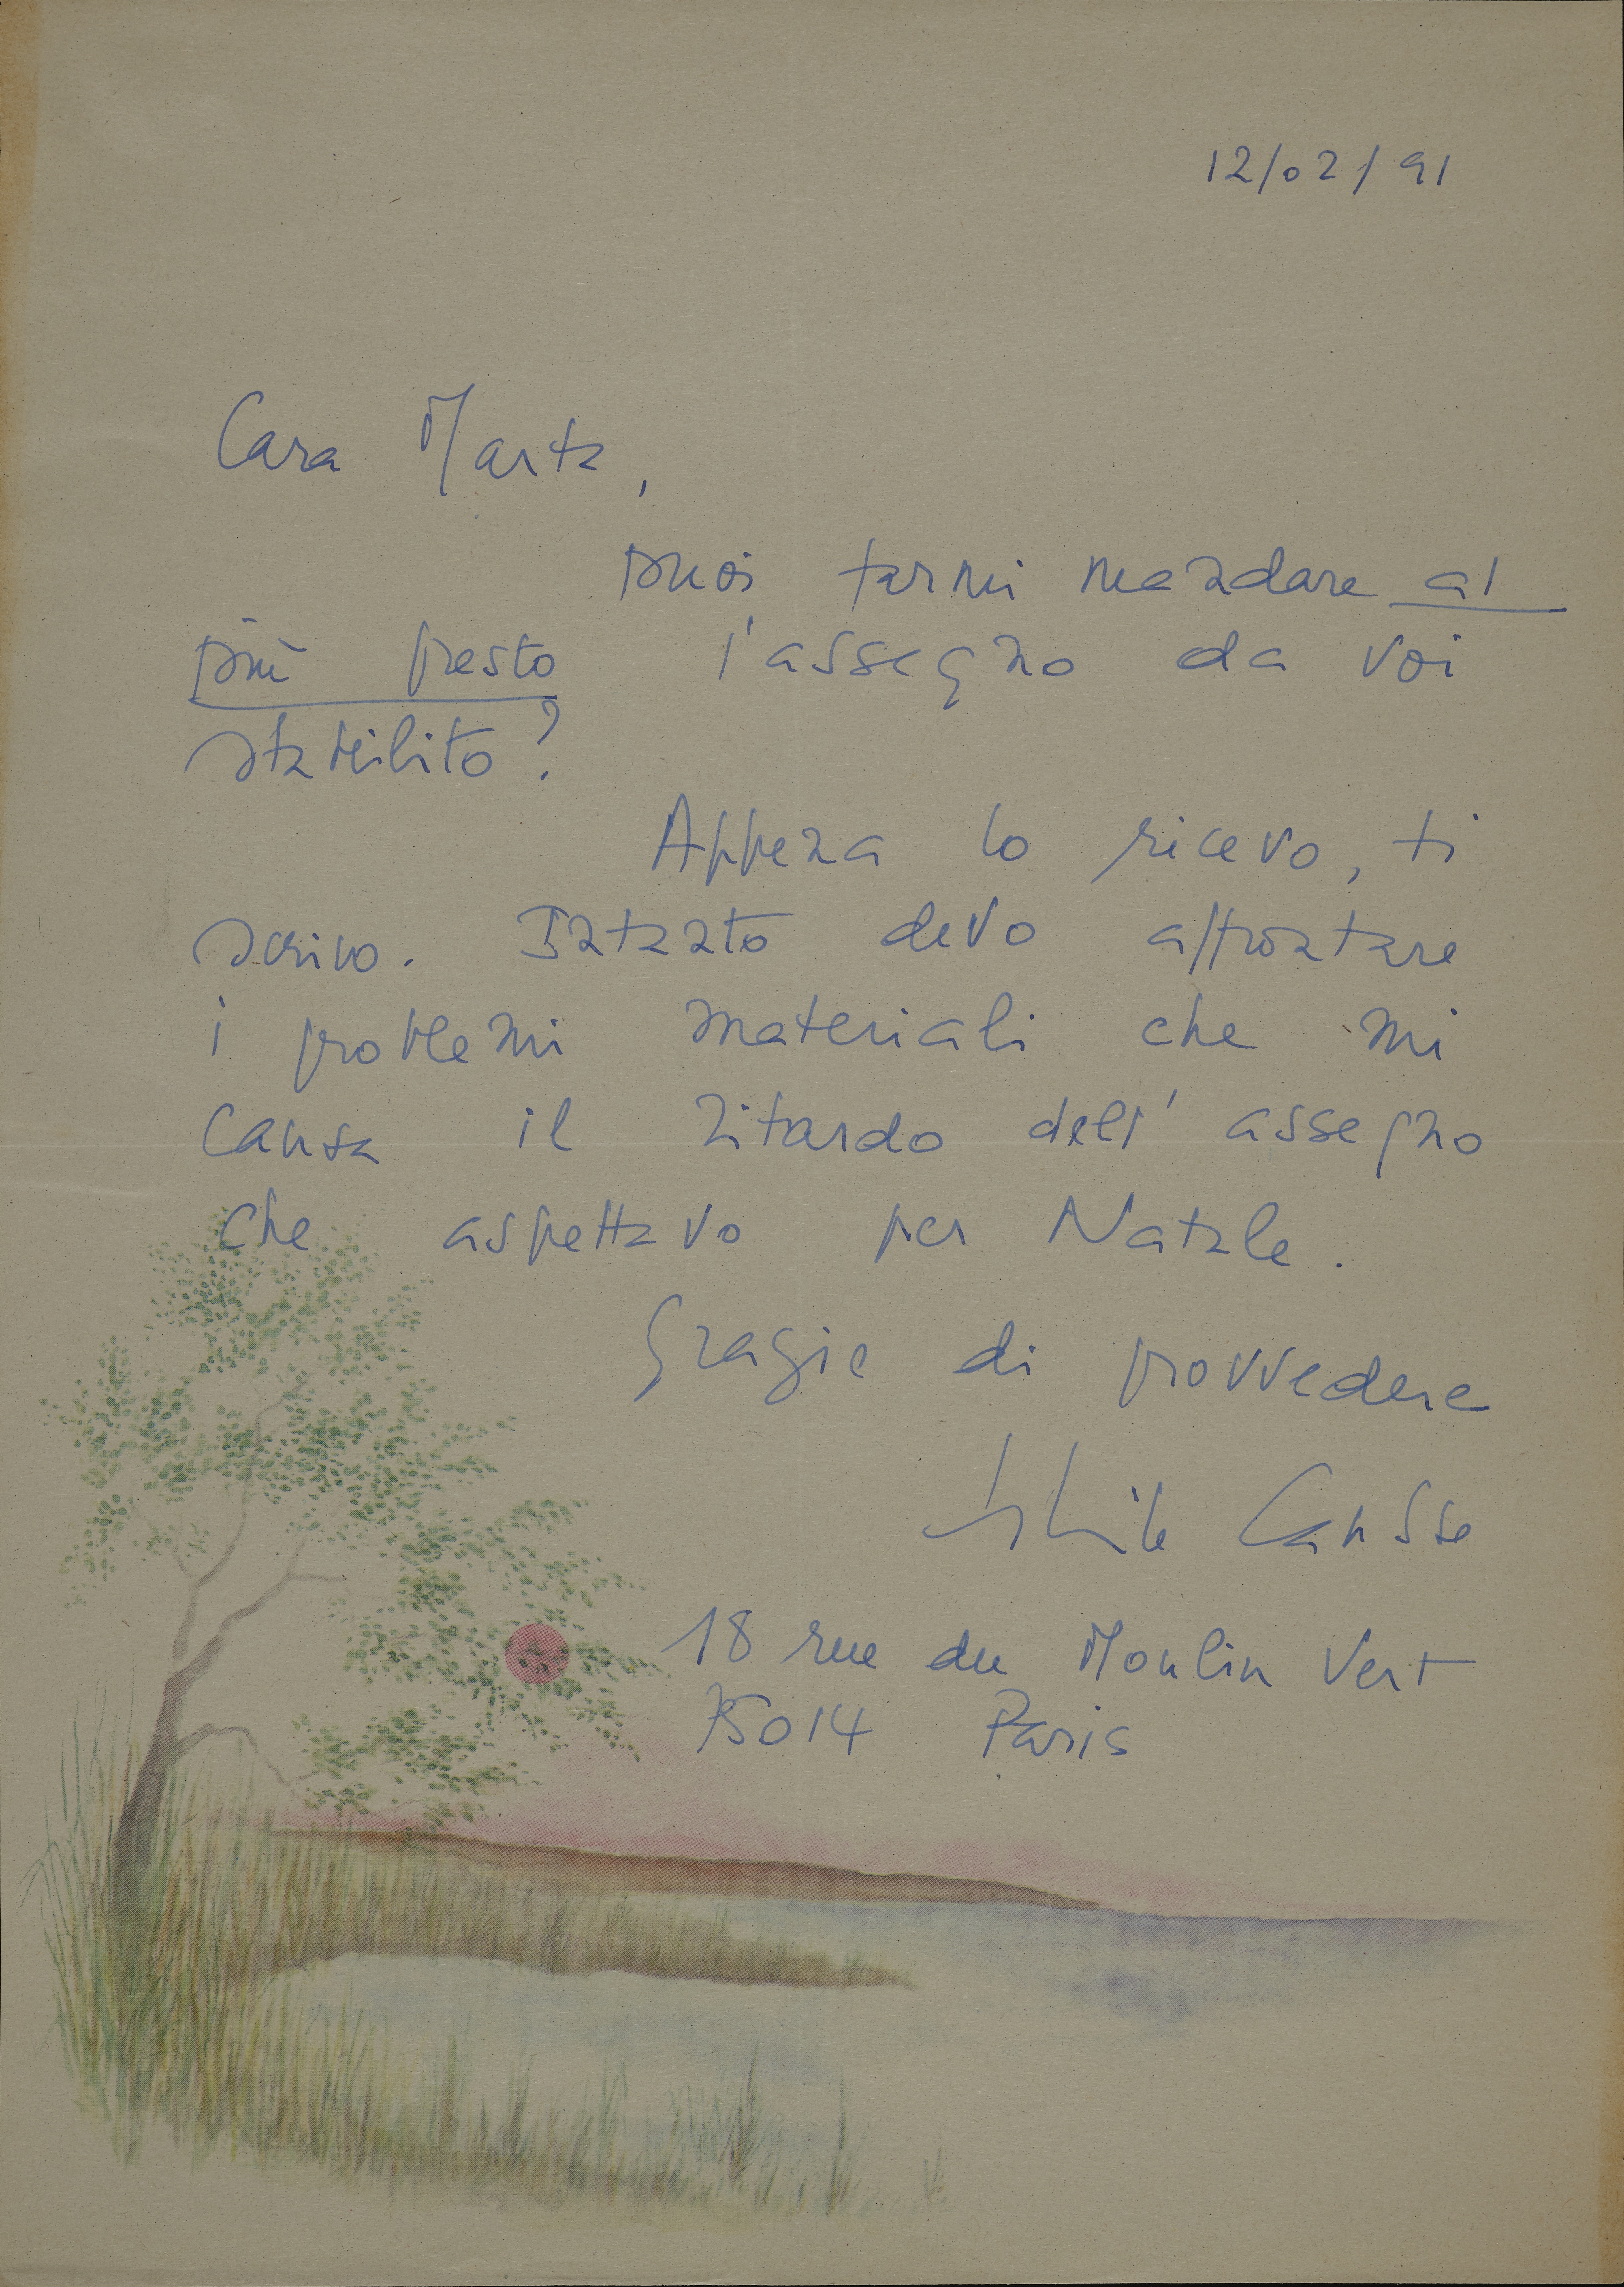 12/02/91
Cara Marta,
puoi farmi mandare al
più presto l'assegno da voi
stabilito?
Appena lo ricevo, ti
scrivo. Intanto devo affrontare
i problemi materiali che mi
causa il ritardo dell'assegno
che aspettavo per Natale.
Grazie di provvedere
Causse
18 rue du Moulin Vert
75014 Paris